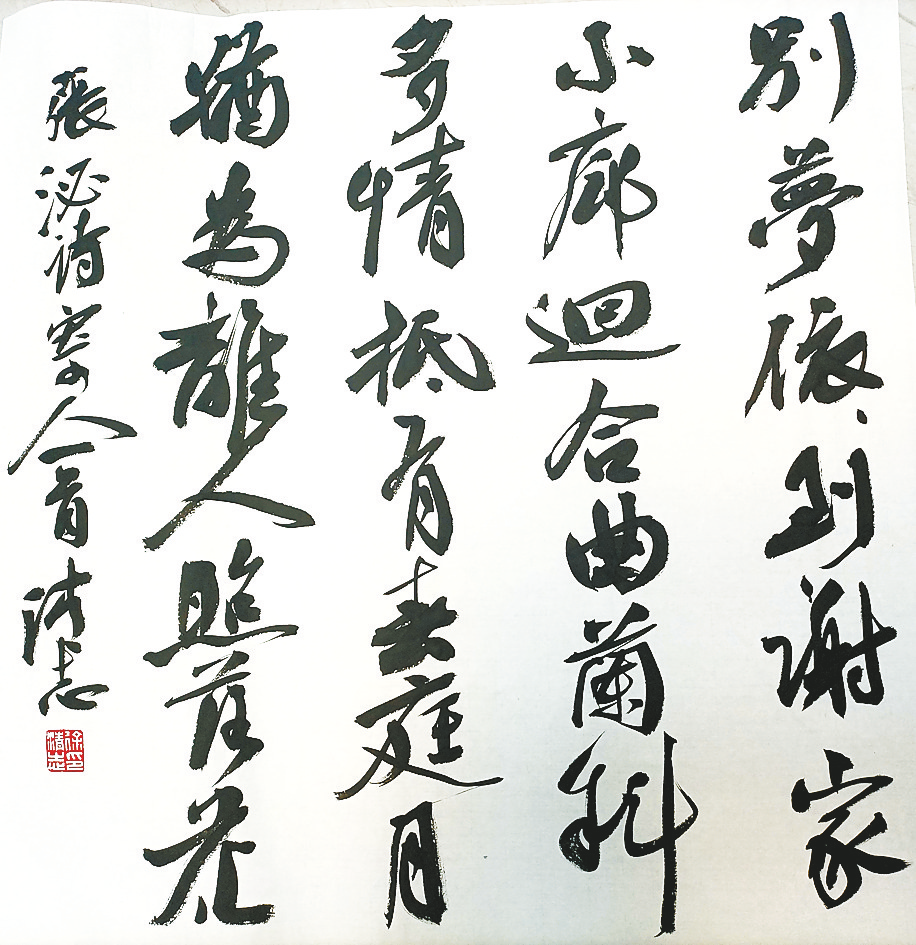 別夢依、到謝家
小廊迴合曲蘭斜
多情秖有春庭月
猶為離人照落花
張泌詩寄人一首 清志
徐印清志